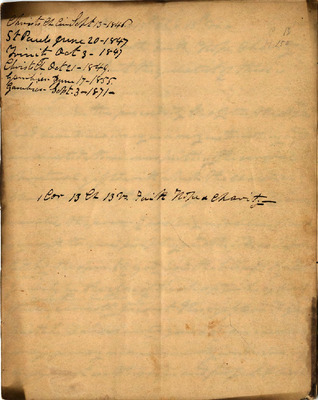 Christ Ch Cin Sept. 13-1846
St Pauls June 20-1847
Trinity Oct 3-1847
Christ Ch Oct 21-1849.
Gambier June 17-1855
Gambier Sept. 3-1871-
1 Cor 13 Ch 13 Vs Faith Hope & Charity.